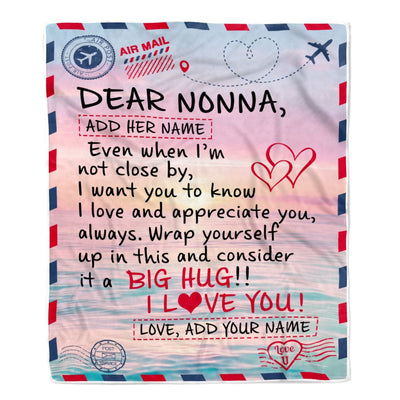 AIR MAIL
DEAR NONNA,
ADD HER NAME
Even when I'm
not close by,
I want you to know
I love and appreciate you,
always. Wrap yourself
up in this and consider
it a BIG HUG!!
I L❤VE YOU!
LOVE, ADD YOUR NAME
Love
U